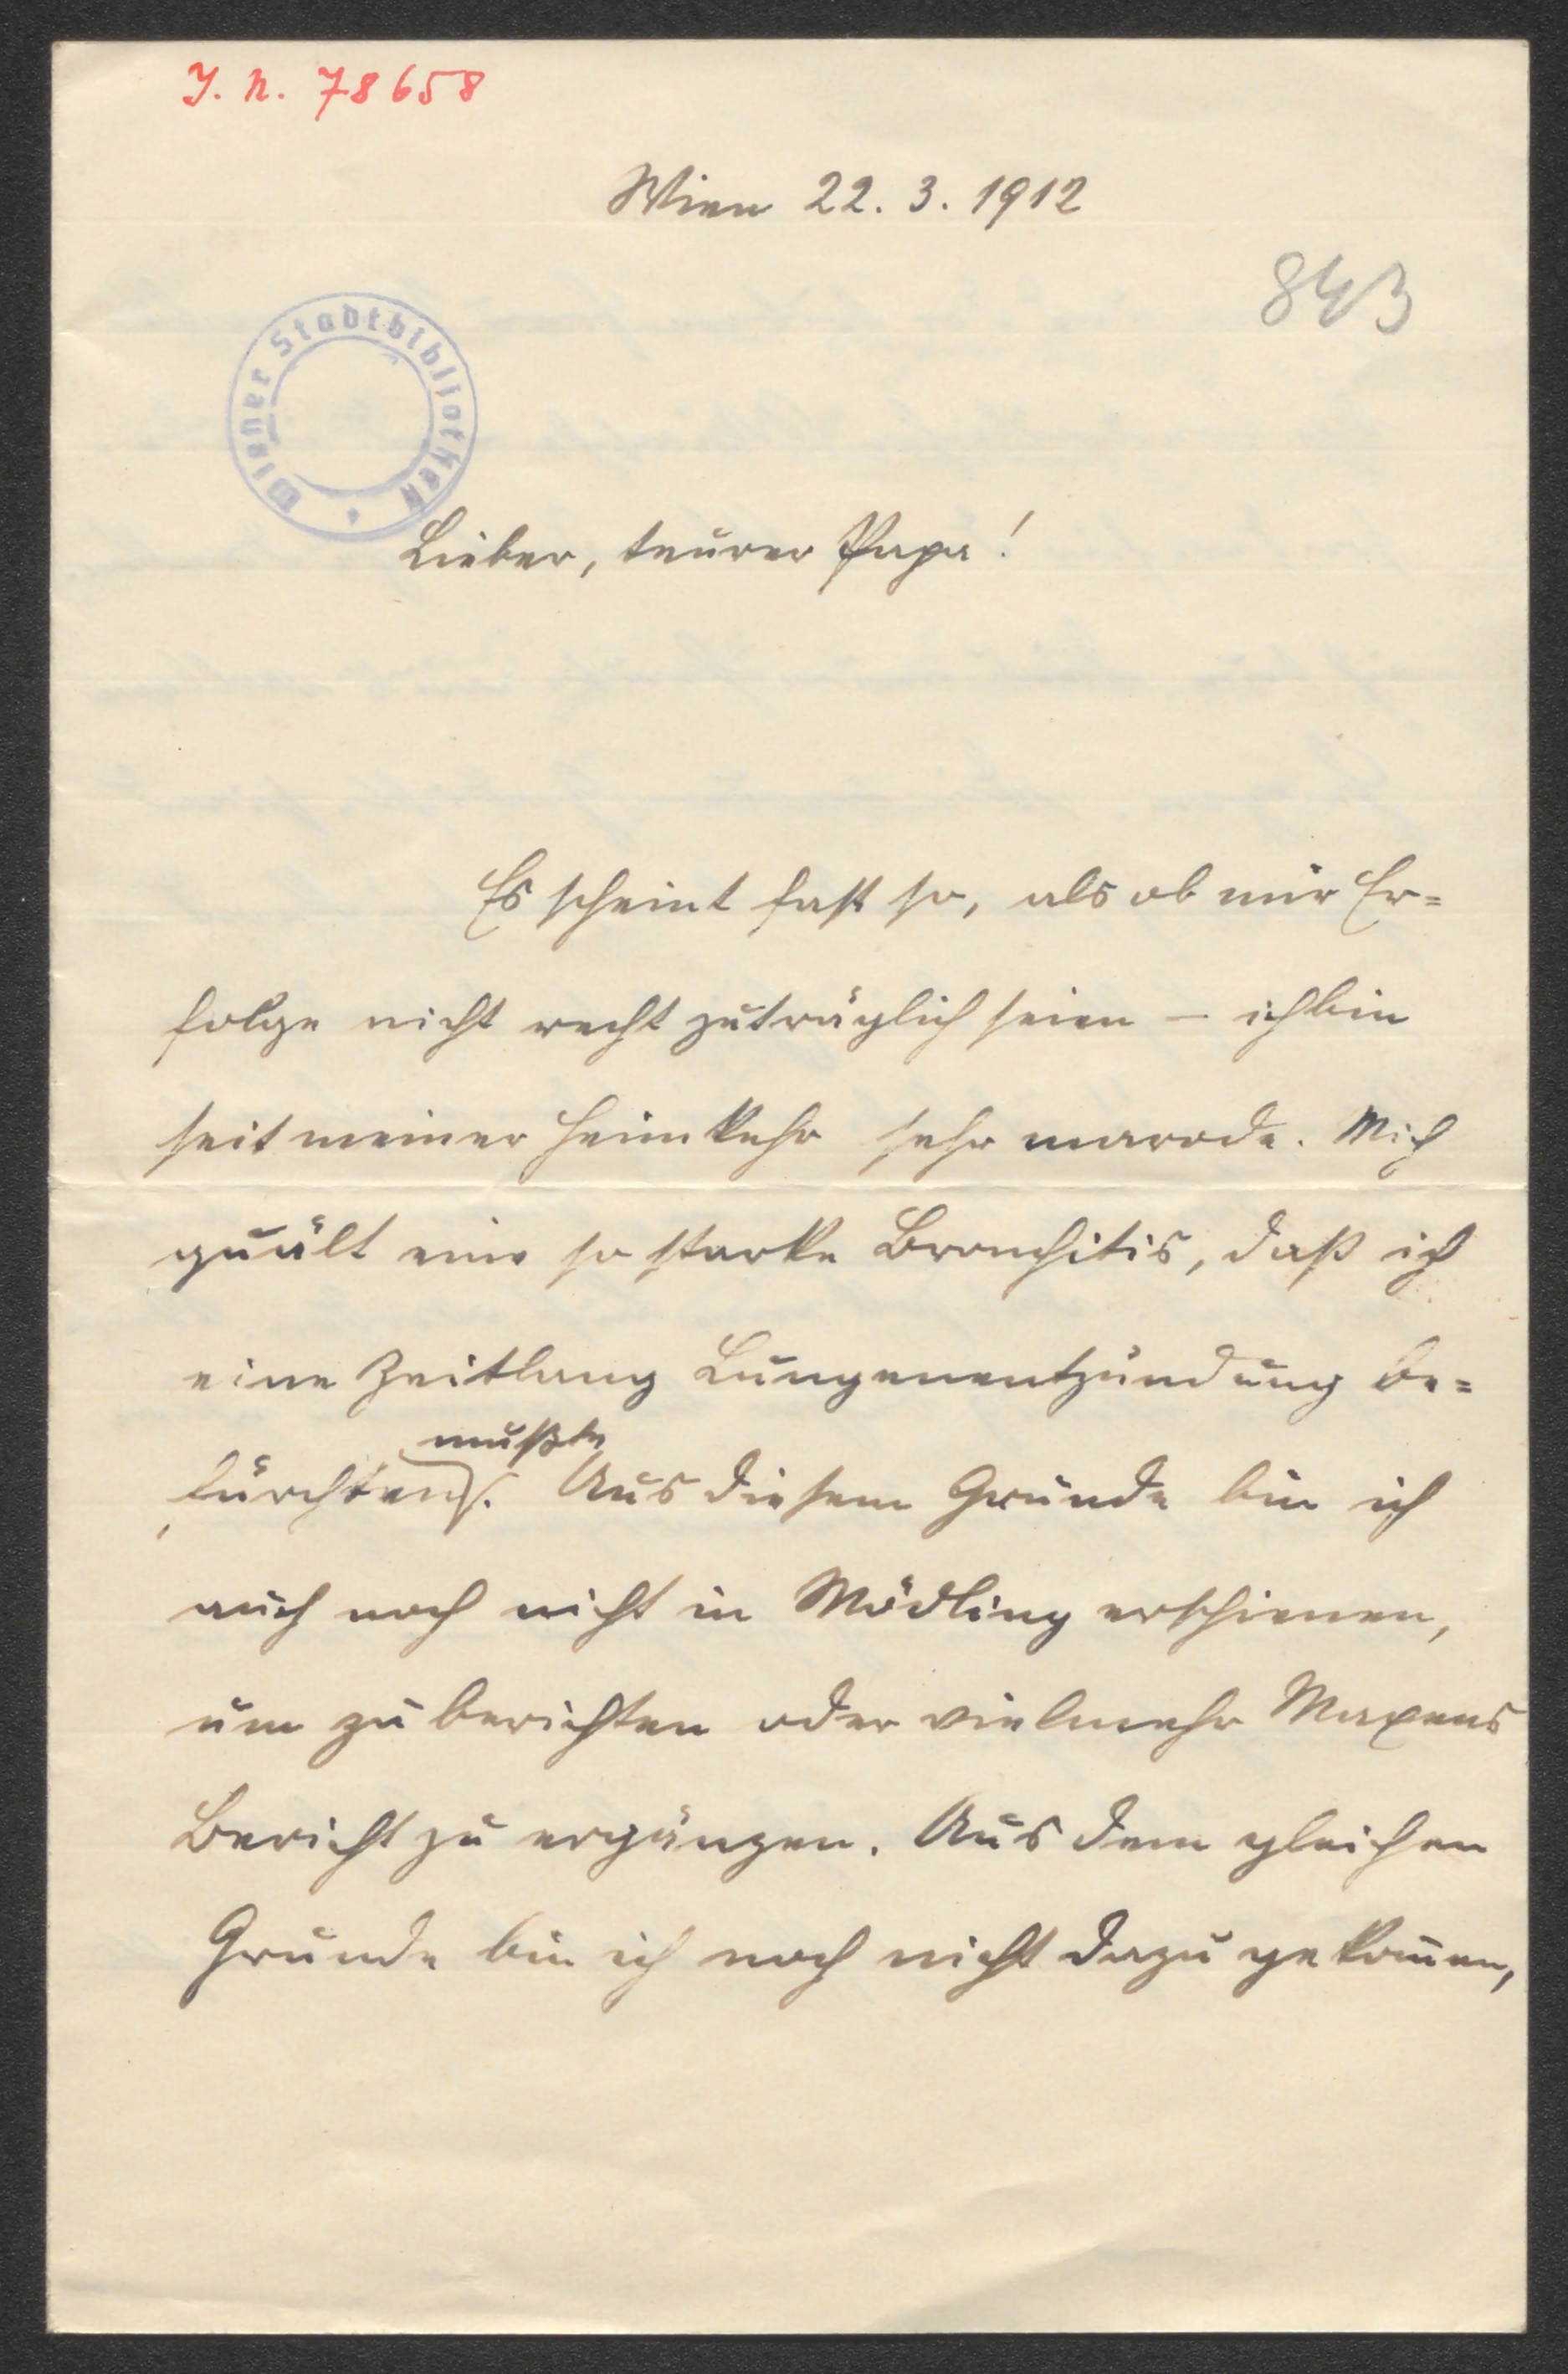 J. N. 78658
Wien 22. 3. 1912
843
Wiener Stadtbibliothek
Lieber, teurer Papa!
Es scheint fast so, als ob mir Er=
folge nicht recht zuträglich seien – ich bin
seit meiner Heimkehr sehr marode. Mich
quält eine so starke Bronchitis, daß ich
eine Zeitlang Lungenentzündung be=
mußte
fürchten. Aus diesem Grunde bin ich
auch noch nicht in Mödling erschienen,
um zu berichten oder vielmehr Maxens
Bericht zu ergänzen. Aus dem gleichen
Grunde bin ich noch nicht dazu gekom̅en,